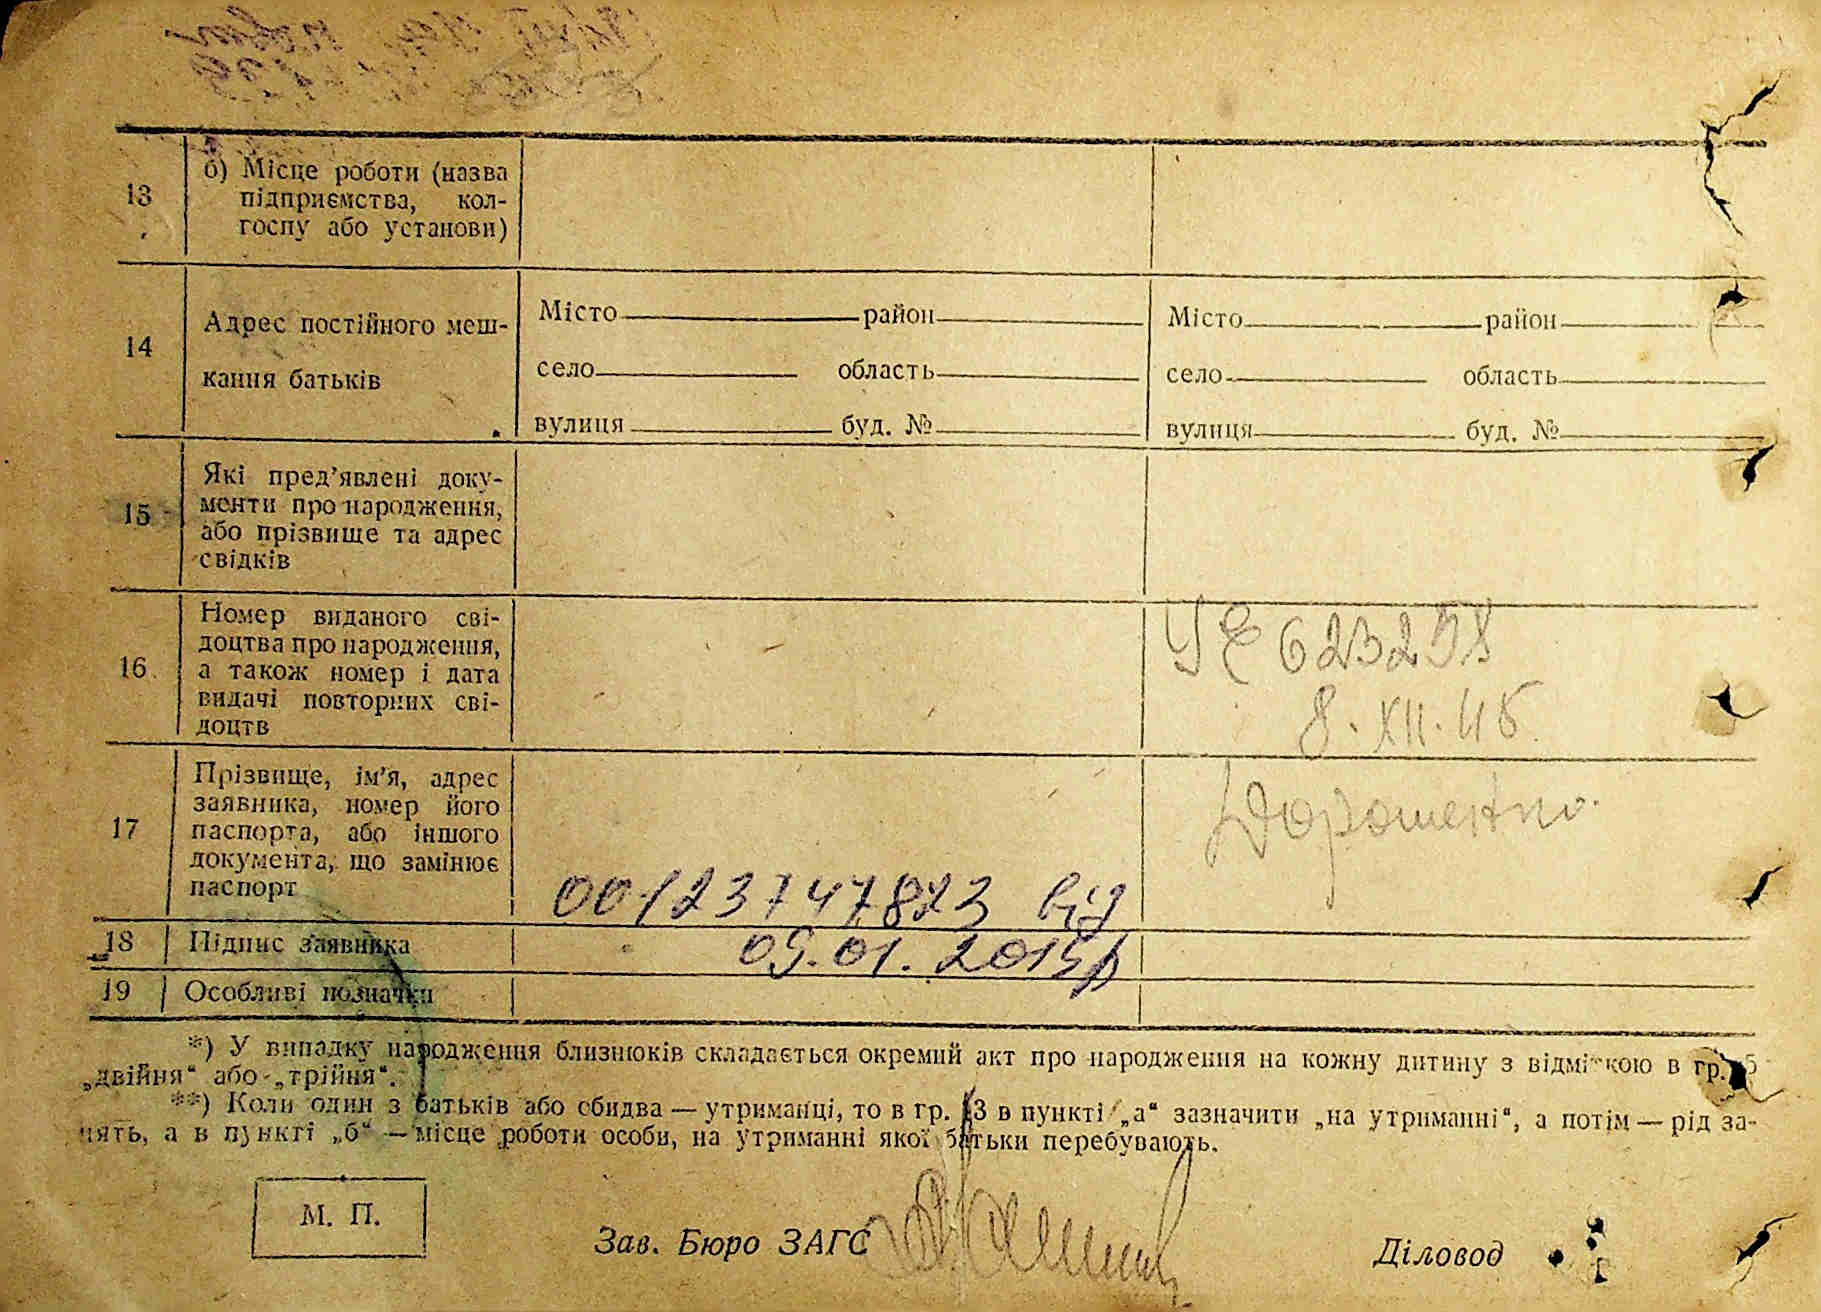 13
б) Місце роботи (назва
підприємства, кол-
госпу або установи)
14
Адрес постійного меш-
кання батьків
Місто район
село область
вулиця буд. №
Місто район
село область
вулиця буд. №
15
Які пред'явлені доку-
менти про народження,
або прізвище та адрес
свідків
16
Номер виданого сві-
доцтва про народження,
а також номер і дата
видачі повторних сві-
доцтв
УЄ 623298
8.XII.45
17
Прізвище, ім'я, адрес
заявника, номер його
паспорта, або іншого
документа, що замінює
паспорт
Дорошенко
00123747823 від
09.01.2015р
18
Підпис заявника
19
Особливі позначки
*) У випадку народження близнюків складається окремий акт про народження на кожну дитину з відміткою в гр. 5
„двійня“ або „трійня“.
**) Коли один з батьків або обидва — утриманці, то в гр. 13 в пункті „а“ зазначити „на утриманні“, а потім — рід за-
нять, а в пункті „б“ — місце роботи особи, на утриманні якої батьки перебувають.
М. П.
Зав. Бюро ЗАГС
Діловод